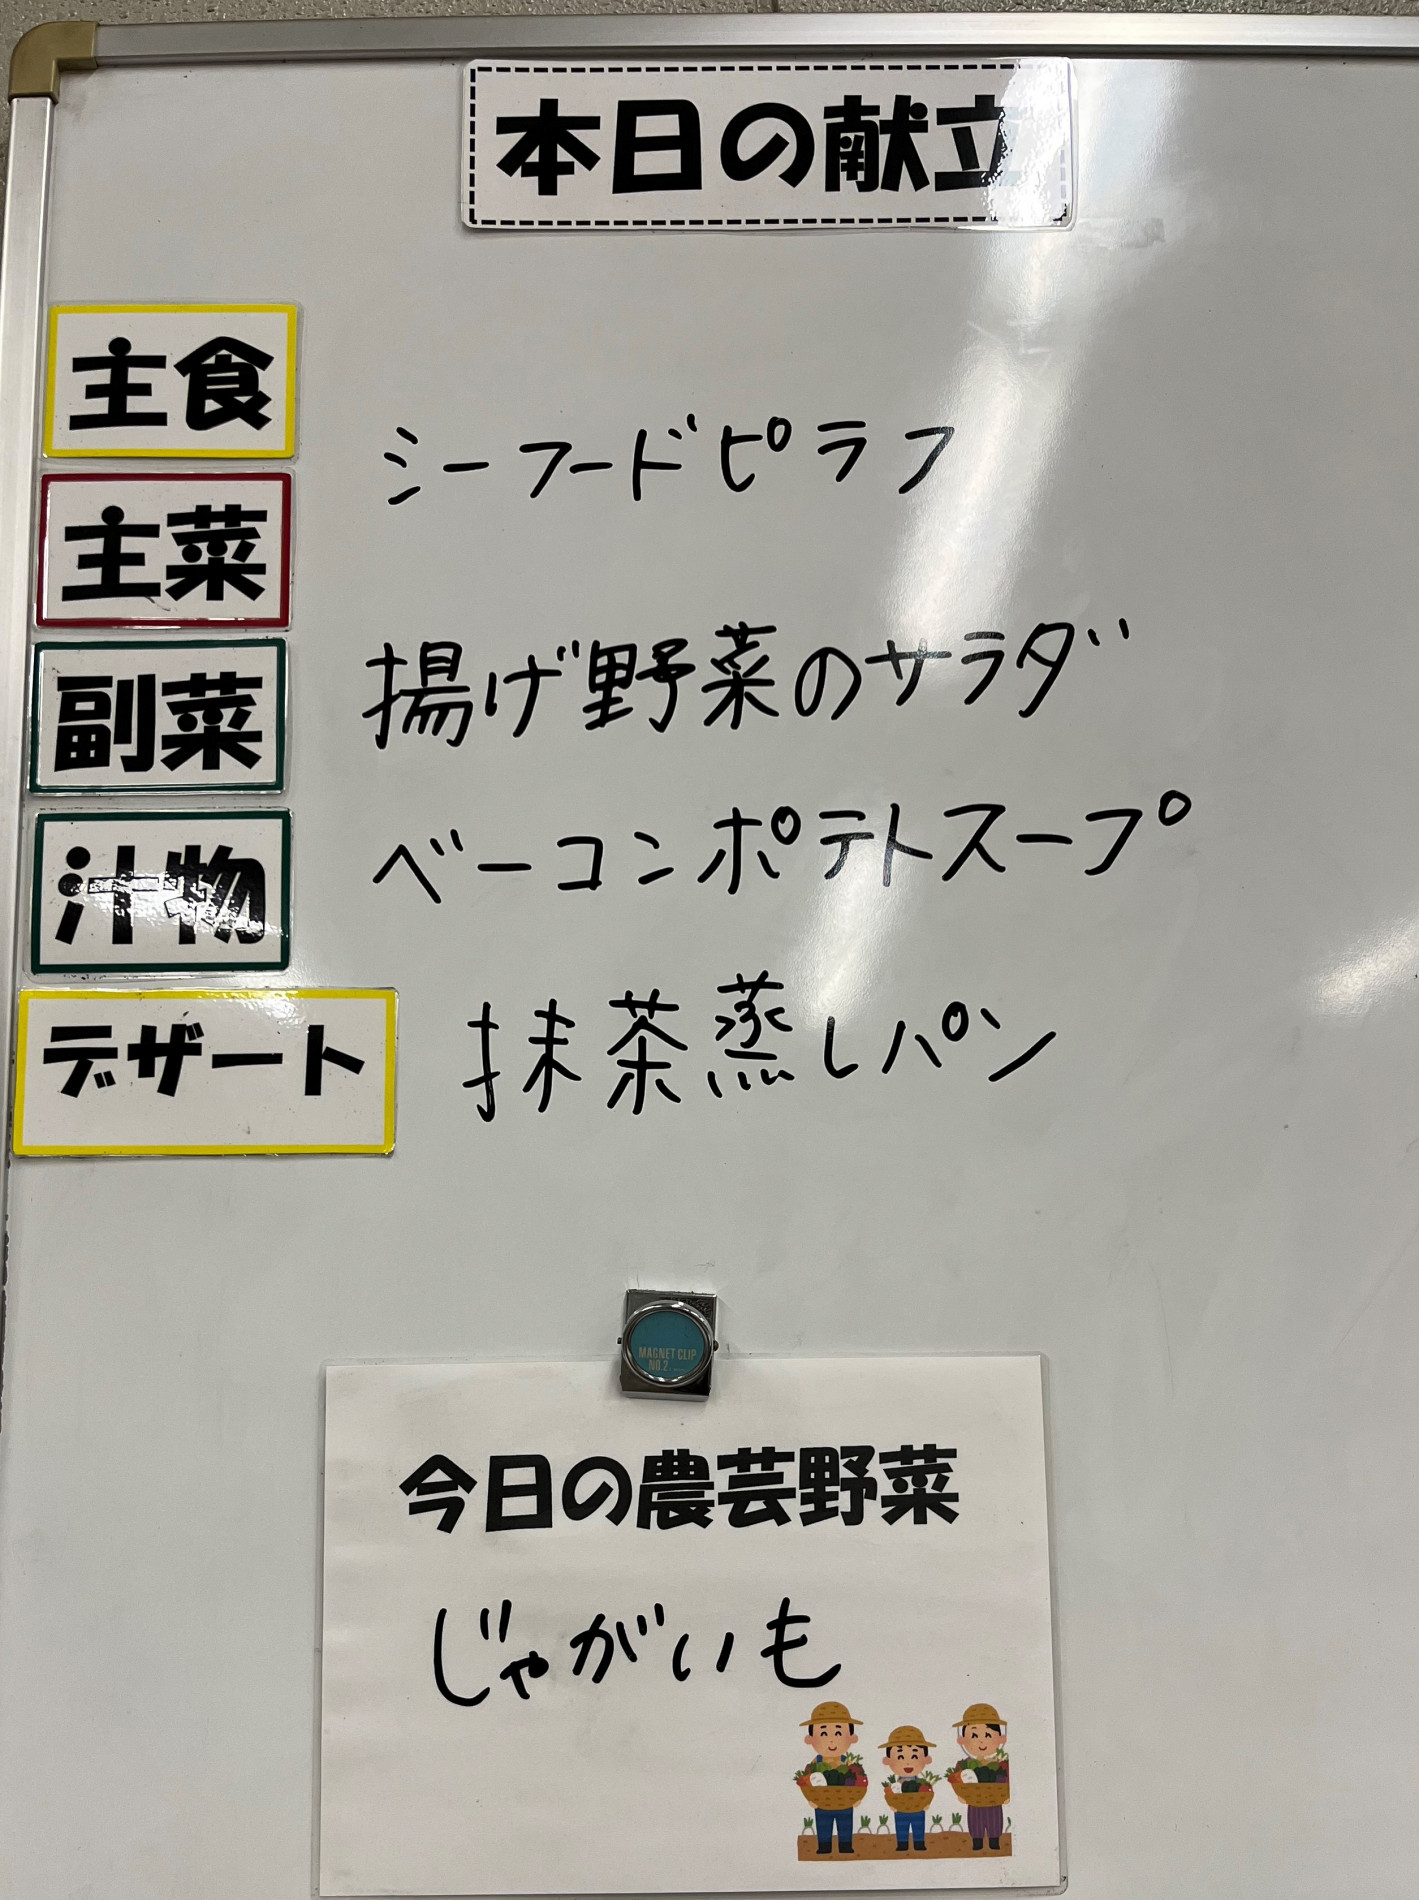 本日の献立
主食
シーフードピラフ
主菜
副菜
揚げ野菜のサラダ
汁物
ベーコンポテトスープ
デザート
抹茶蒸しパン
MAGNET CLIP
NO.2
今日の農芸野菜
じゃがいも